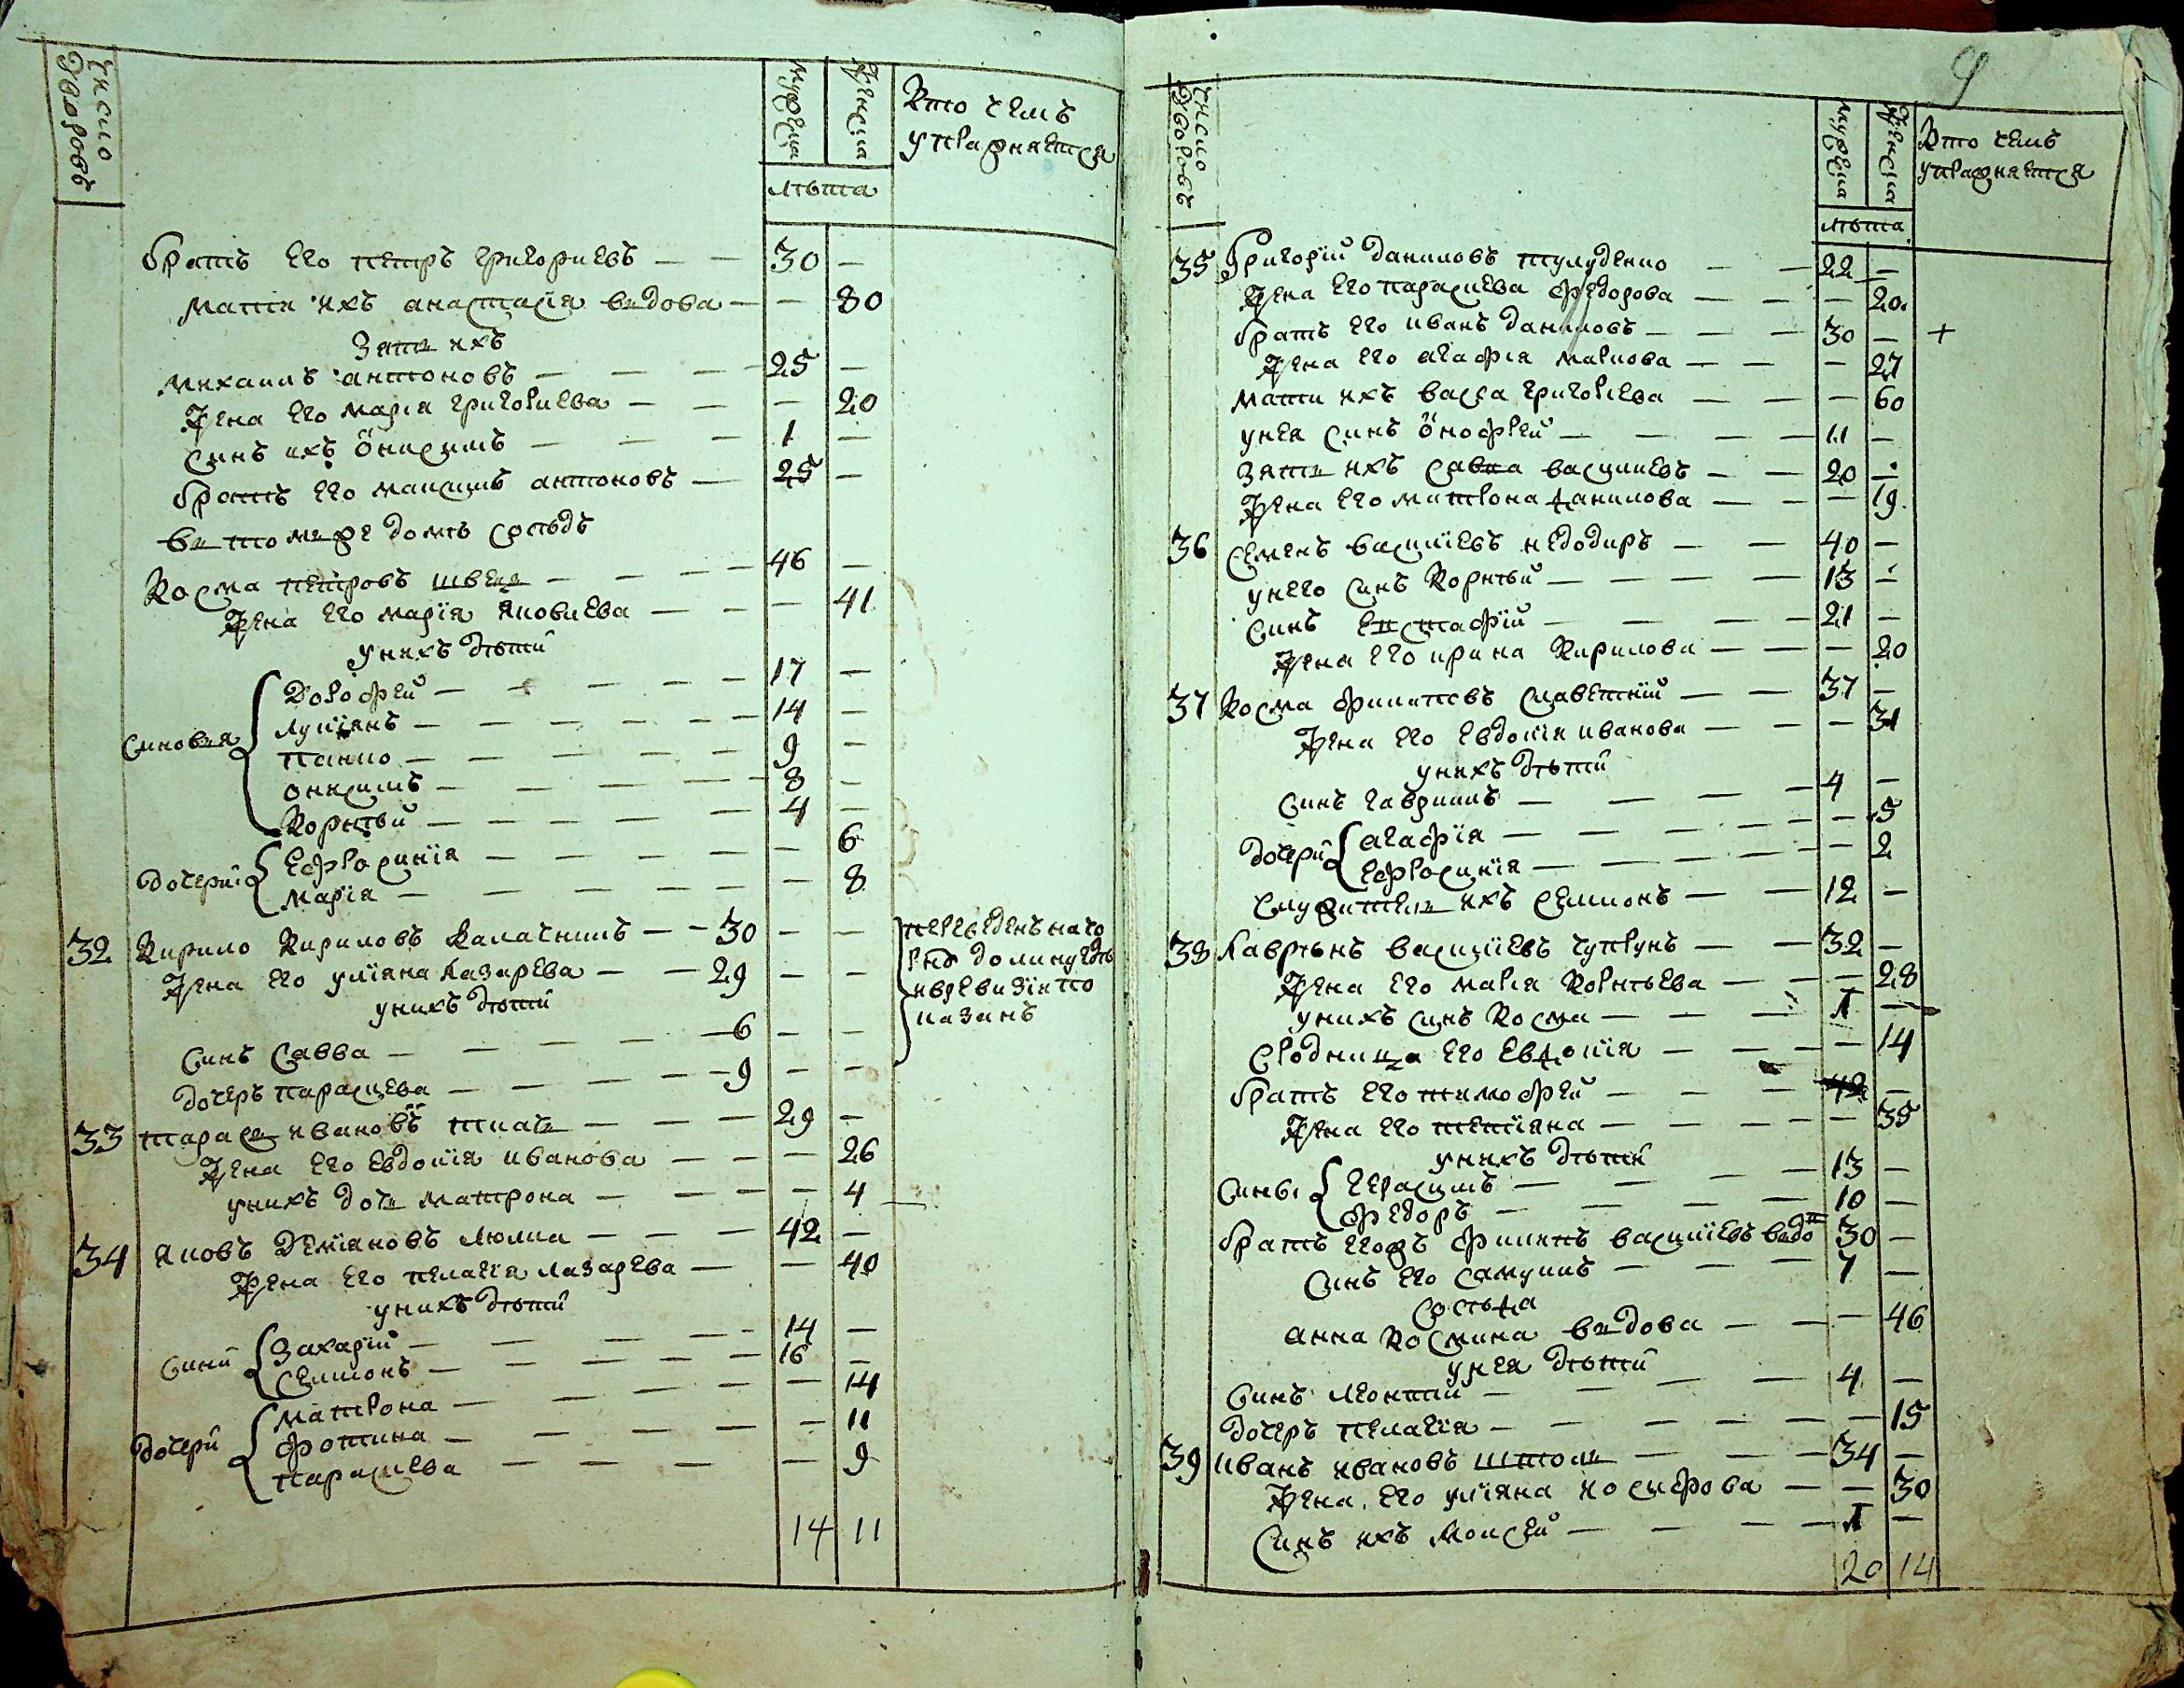 число дворовъ
мужеска
женска
лѣта
кто чемъ
упражняется
братъ его петръ григориевъ — — 30 —
мати ихъ анастасїя вдова — — 80
зять ихъ
михаилъ антоновъ — — — 25 —
жена его марїя григориева — — — 20
синъ ихъ онисимъ — — — 1 —
братъ его максимъ антоновъ — 25 —
въ томже домѣ сосѣдъ
косма петровъ швець — — — 46 —
жена его марїя яковлева — — — 41
у нихъ дѣтей
синовья
дорофей — — — — 17 —
лукїянъ — — — — 14 —
панко — — — — 9 —
онисимъ — — — — 8 —
корнѣй — — — — 4 —
дочерѝ
ефросинїя — — — — 6
марїя — — — — 8
32 кирило кириловъ калачникъ — — 30 — —
жена его улїяна лазарева — — 29 — —
у нихъ дѣтей
синъ савва — — — — 6 — —
дочеръ параскева — — — — 9 — —
переведенъ на
показанъ
33 тарасъ ивановъ ткачь — — — 29 —
жена его евдокїя иванова — — — 26
у нихъ дочь матрона — — — — 4
34 яковъ демїановъ люлка — — — 42 —
жена его пелагїя лазарева — — 40
у нихъ дѣтей
сини
захарїй — — — — 14 —
симионъ — — — — 16 —
дочери
матрона — — — — 14
фотина — — — — 11
параскева — — — — 9
14 11
9
число дворовъ
мужеска
женска
лѣта
кто чемъ
упражняется
35 григорїй даниловъ — — 22 —
жена его параскева федорова — — — 20
братъ его иванъ даниловъ — — — 30 — +
жена его агафїя маркова — — — 27
мати ихъ васса григориева — — — 60
у нея синъ онофрей — — — — 11 —
зять ихъ савка василиевъ — — 20 —
жена его матрона данилова — — — 19
36 семенъ василїевъ недодиръ — — 40 —
у него синъ корнѣй — — — — 13 —
синъ евстафїй — — — — 21 —
жена его ирина кирилова — — — 20
37 косма филиповъ славетнїй — — 37 —
жена его евдокїя иванова — — — 31
у нихъ дѣтей
синъ гаврилъ — — — — 4 —
дочерѝ
агафїя — — — — 5
ефросинїя — — — — 2
служитель ихъ симионъ — — 12 —
38 лаврѣнъ василїевъ чупрунъ — — 32 —
жена его марїя корнѣева — — — 28
у нихъ синъ косма — — — 1 —
сродница его евдокїя — — — 14
братъ его тимофей — — — 42 —
жена его тетїяна — — — — 35
у нихъ дѣтей
сини
герасимъ — — — — 13 —
федоръ — — — — 10 —
братъ егожъ филипъ василїевъ вдо 30 —
синъ его самуилъ — — — 7 —
сосѣда
анна космина вдова — — — 46
у нея дѣтей
синъ леонтий — — — — 4 —
дочеръ пелагїя — — — — 15
39 иванъ ивановъ — — — 34 —
жена его улїяна носифрова — — 30
синъ ихъ моисей — — — — 1 —
20 14